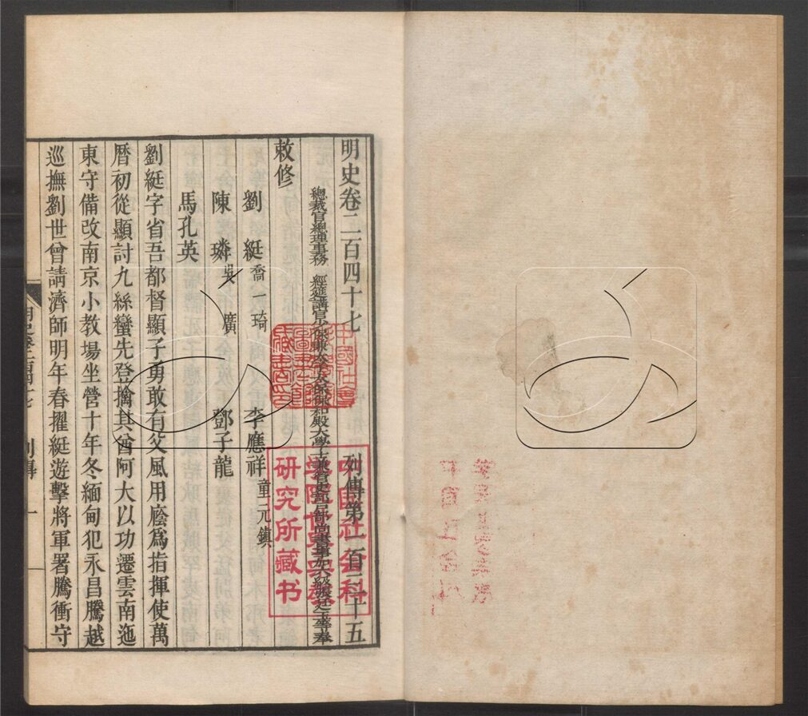 明史卷二百四十七　列傳第一百三十五
總裁官總理事務　經筵講官少保兼太子太保保和殿大學士兼管吏部戶部尚書事加六級臣張廷玉等奉
敕修
劉綎　喬一琦　李應祥　童元鎮
陳璘　吳廣　鄧子龍
馬孔英
劉綎字省吾都督顯子勇敢有父風用廕爲指揮使萬
曆初從顯討九絲蠻先登擒其酋阿大以功遷雲南迤
東守備改南京小教場坐營十年冬緬甸犯永昌騰越
巡撫劉世曾請濟師明年春擢綎遊擊將軍署騰衝守
列傳　一
研究所藏书